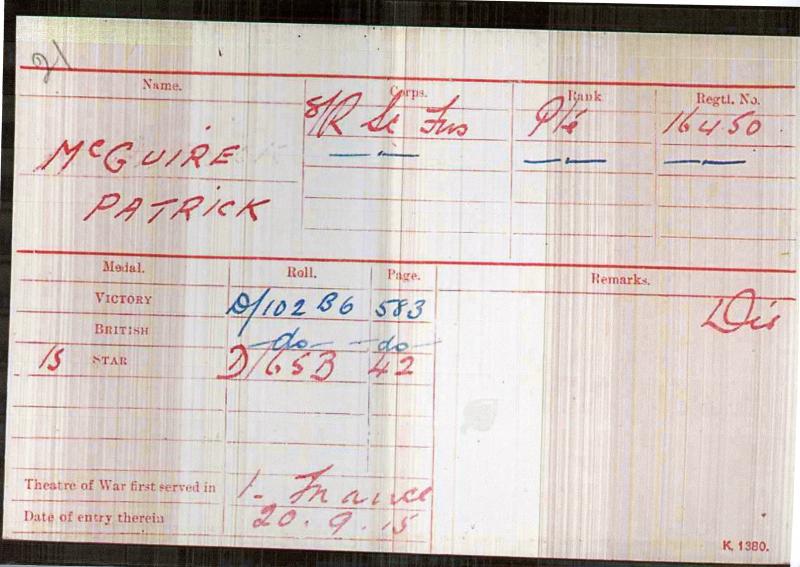 21
Name. Corps. Rank Regtl. No.
8/R Sc Fus Pte 16450
McGUIRE
PATRICK
Medal. Roll. Page. Remarks.
VICTORY D/102 B6 583 Dis
BRITISH do do
15 STAR D/65B 42
Theatre of War first served in 1- France
Date of entry therein 20.9.15
K. 1380.